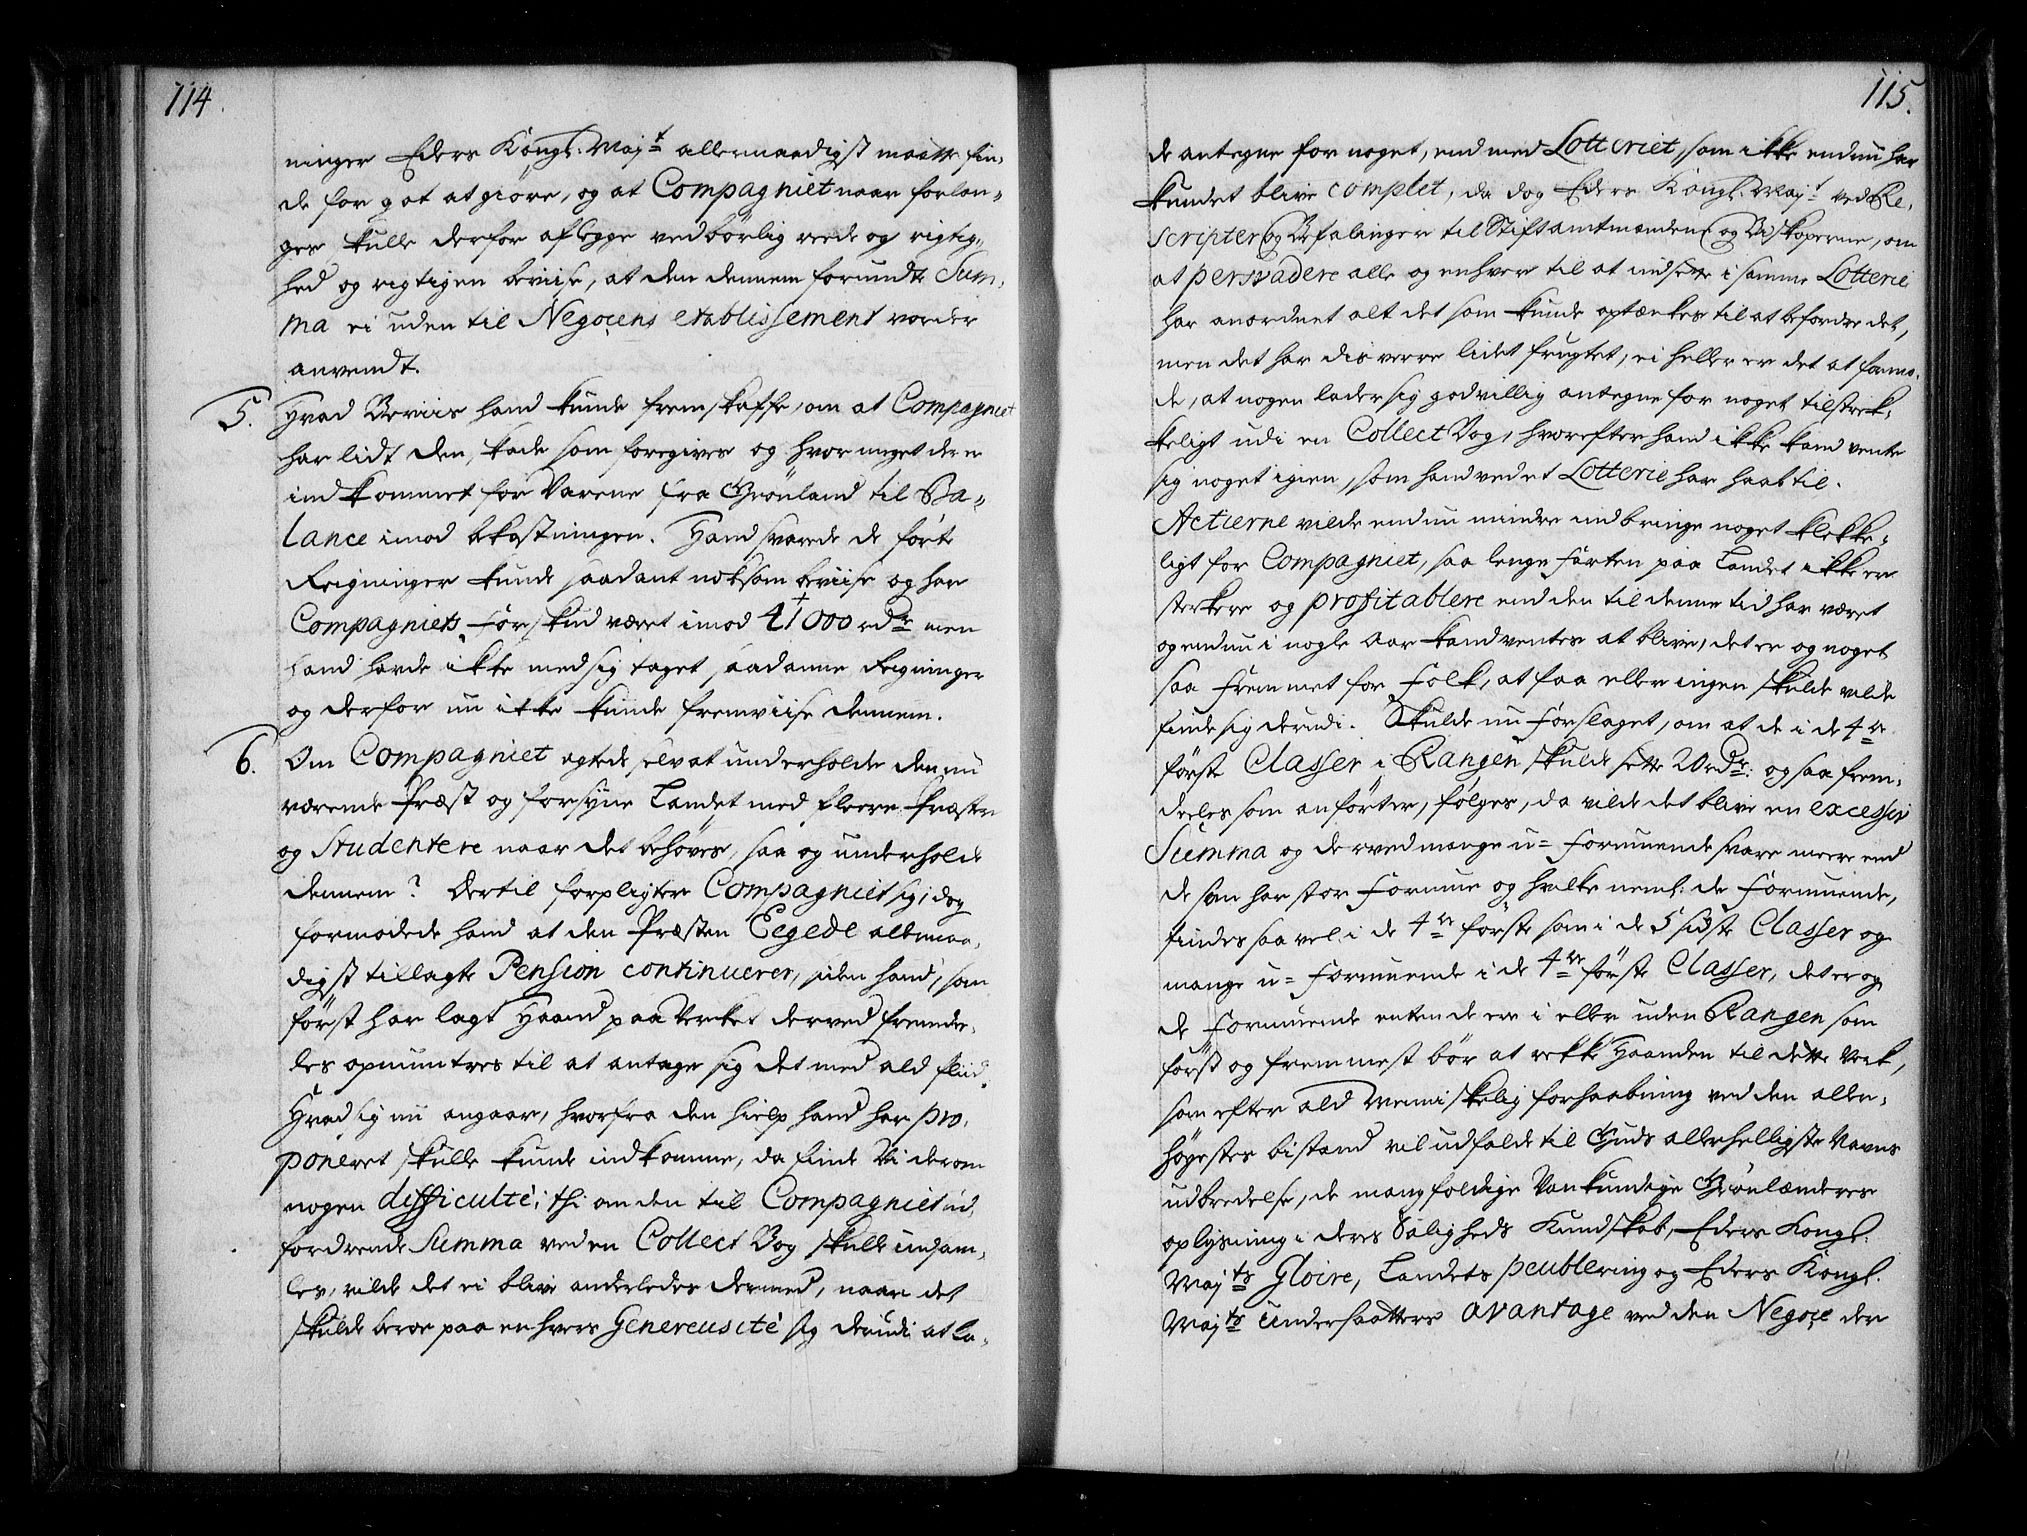 114.
ninger Eders Kongl. Majt allernaadigst maatte fin-
de for got at giöre, og at Compagniet naar forlan-
ges skulle derfor aflegge vedbörlig reede og rigtig-
hed og rigtigen beviise, at den dennem forundte Sum-
ma ei uden til Negocens etablissement vorder
anvendt.
5. Hvad Beviis hand kunde fremskaffe, om at Compagniet
har lidt den skade som foregives og hvor meget der er
indkommet for Varene fra Grönland til Ba-
lance imod bekostningen. Hand svarede de förte
Regninger kunde saadant noksom beviise og har
Compagniets forskud været imod 41000 rdr men
hand hafde ikke med sig taget saadanne Regninger
og derfor nu ikke kunde fremviise dennem.
6. Om Compagniet agtede selv at underholde den nu
værende Præst og forsyne Landet med fleere Præster
og Studentere naar det behöves, saa og underholde
dennem? Dertil forpligter Compagniet sig, dog
formodede hand at den Præsten Egede allernaa-
digst tillagte Pension continuerer, siden hand, som
först har lagt Haand paa Verket derved fremde-
les opmuntres til at antage sig det med ald fliid.
Hvad sig nu angaar, hvorfra den hielp hand har pro-
poneret skulle kunde indkomme, da finde Vi derom
nogen difficulté; thi om den til Compagniet ud-
fordrende Summa ved en Collect Bog skulle indsam-
les, vilde det ei blive anderledes dermed, naar det
skulde beroe paa enhvers Genereusité sig derudi at la-
115.
de antegne for noget, end med Lotteriet, som ikke endnu har
kundet blive complet, da dog Eders Kongl. Majt ved Re-
scripter og Befalinger til Stiftamtmændene og Biskoperne, om
at persvadere alle og enhver til at indsette i samme Lotterie
har anordnet alt det som kunde optænkes til at befordre det,
men det har dis verre lidet frugtet, ei heller er det at formo-
de, at nogen lader sig godvillig antegne for noget tilstrek-
keligt udi en Collect Bog, hvorefter hand ikke kand vente
sig noget igien, som hand ved et Lotterie har haab til.
Actierne vilde endnu mindre indbringe noget klekke-
ligt for Compagniet, saa lenge farten paa Landet ikke er
sterkere og profitablere end den til denne tid har været
og endnu i nogle Aar kand ventes at blive, det er og noget
saa fremmet for Folk, at faa eller ingen skulde vilde
finde sig derudi. Skulde nu forslaget, om at de i de 4re
förste Classer i Rangen skulde sette 20 rdr: og saa frem-
deeles som anförter, fölges, da vilde det blive en excessiv
Summa og derved mange u-formuende svare meere end
de som har stor Formue og hvilke neml: de formuende,
findes saa vel i de 4re förste som i de 5 sidste Classer og
mange u-formuende i de 4re förste Classer, det er og
de formuende enten de ere i eller uden Rangen som
först og fremmest bör at rekke Haanden til dette Verk,
som efter ald Menniskelig forhaabning ved den aller-
högestes bistand vil udfalde til Guds allerhelligste Navns
udbredelse, de mangfoldige Vankundige Grönlænderes
oplysning i deres Saligheds Kundskab, Eders Kongl.
Majts Gloire, Landets peublering og Eders Kongl.
Majts Undersaatters avantage ved den Negoce der